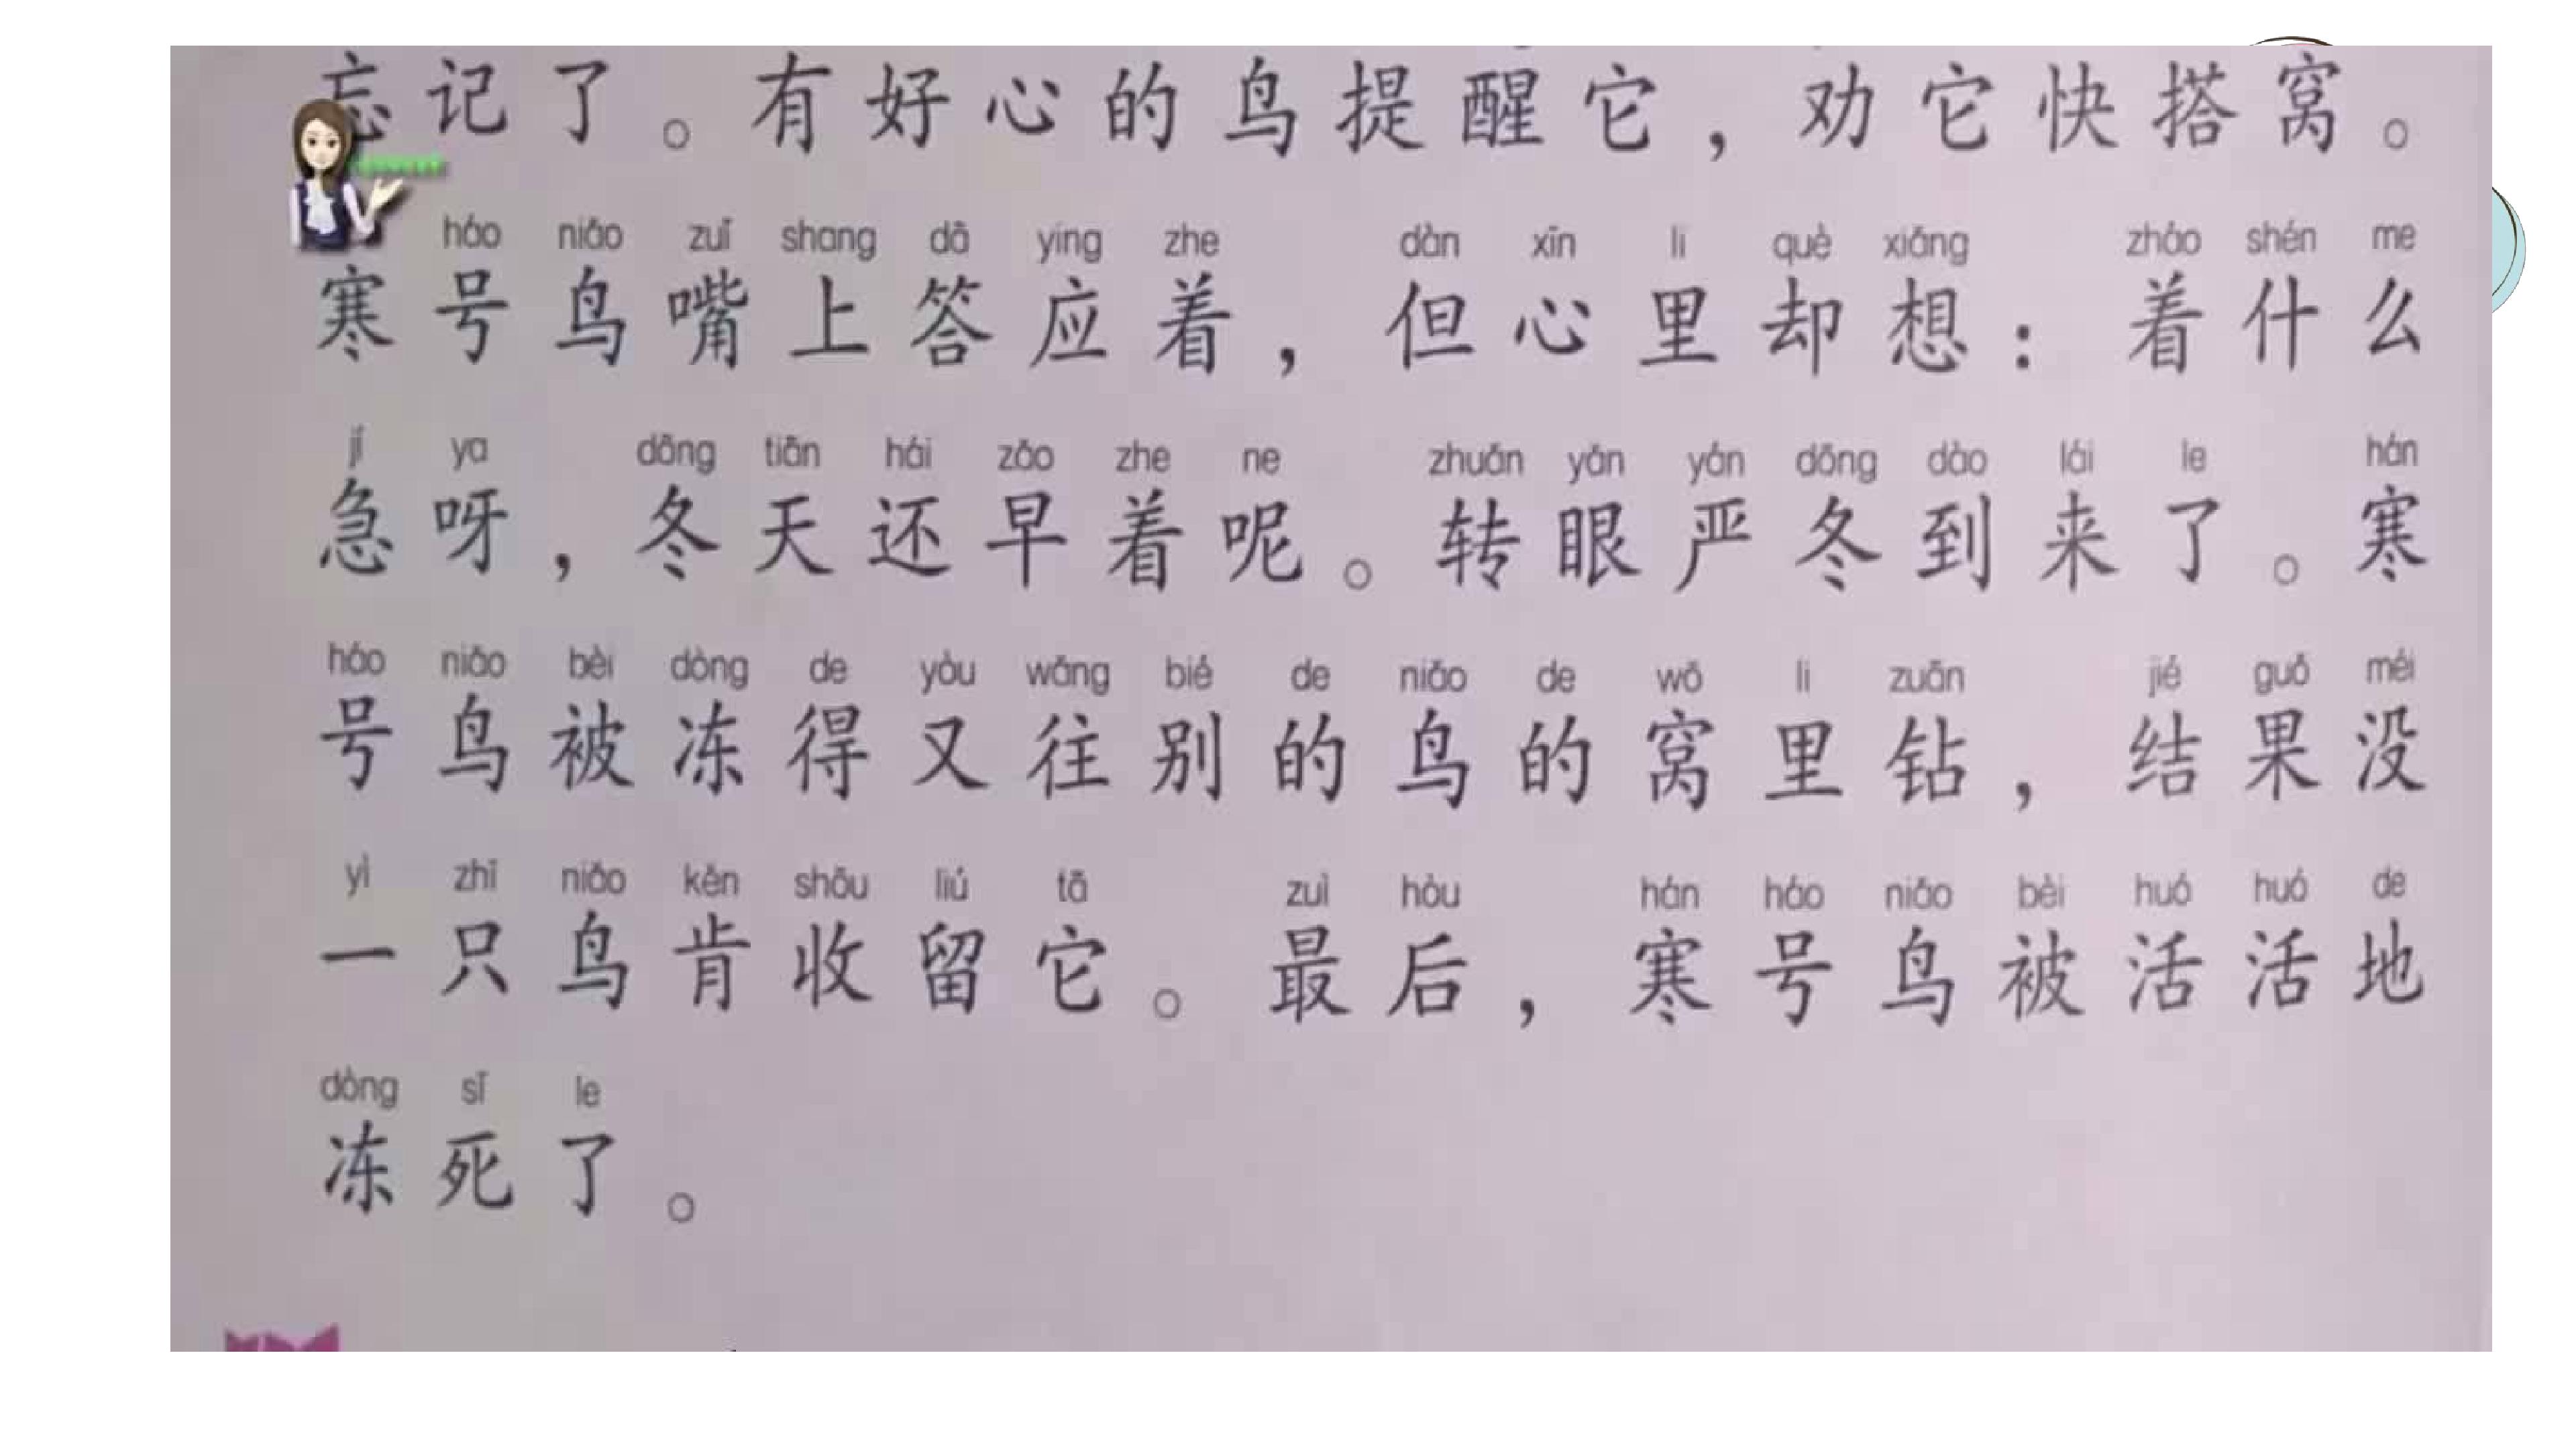 忘记了。有好心的鸟提醒它，劝它快搭窝。
háo niǎo zuǐ shang dā ying zhe dàn xīn li què xiǎng zháo shén me
寒号鸟嘴上答应着，但心里却想：着什么
jí ya dōng tiān hái zǎo zhe ne zhuǎn yǎn yán dōng dào lái le hán
急呀，冬天还早着呢。转眼严冬到来了。寒
háo niǎo bèi dòng de yòu wǎng bié de niǎo de wō li zuān jié guǒ méi
号鸟被冻得又往别的鸟的窝里钻，结果没
yì zhī niǎo kěn shōu liú tā zuì hòu hán háo niǎo bèi huó huó de
一只鸟肯收留它。最后，寒号鸟被活活地
dòng sǐ le
冻死了。